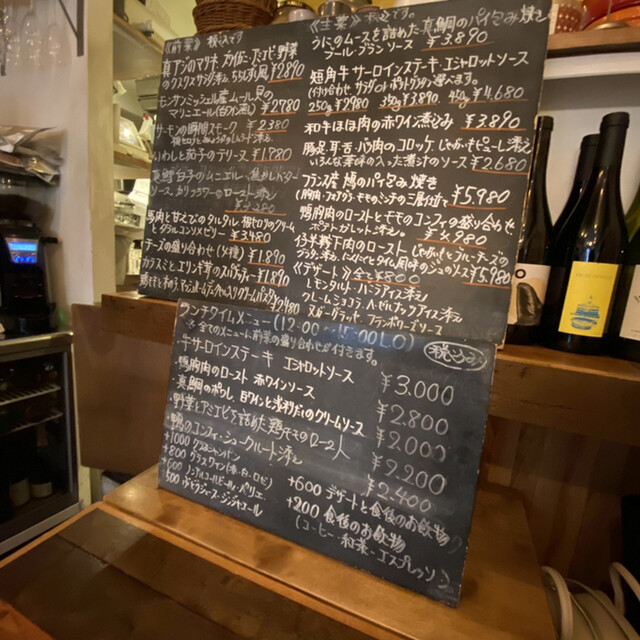 《前菜》 税込です
真アジのマリネ
のクスクスサラダ ¥2890
モンサンミッシェル産ムール貝の
マリニエール(白ワイン蒸し) ¥2980
サーモンの瞬間スモーク ¥2380
いわしと茄子のテリーヌ ¥1980
真鱈白子のムニエル
ソース、カリフラワーのロースト添え
馬肉と甘とびのタルタル
¥3480
チーズの盛り合わせ ¥1890
カラスミとエリンギ茸のスパゲティー ¥1890
クリームパスタ ¥2480
《主菜》 税込です。
うにのムースを詰めた真鯛のパイ包み焼き
ブールブランソース ¥3,890
短角牛サーロインステーキ エシャロットソース
(付け合わせ サラダorポテトグラタン選べます。
250g ¥2980 350g ¥3,890 450g ¥4,680
和牛ほほ肉の赤ワイン煮込み ¥3,890
豚足 耳 舌 バラ肉のコロッケ じゃがいもピューレ添え
いろんな薬味の入った煮汁のソース ¥2,680
フランス産 鳩のパイ包み焼き ¥5,980
(胸肉・フォアグラ・もものミンチの三層仕立て
鴨胸肉のローストとモモのコンフィの盛り合わせ
ポテトガレット添え ¥4,980
仔羊鞍下肉のロースト じゃがいもとブルーチーズの
グラタン添え、にんにくとタイム風味のジュのソース ¥5,980
《デザート》 全て¥800
レモンタルト・バニラアイス添え
クレームショコラ ヘーゼルナッツアイス添え
ヌガーグラッセ フランボワーズソース
ランチタイムメニュー (12:00~15:00LO)
※全てのメニューに前菜の盛り合わせが付きます。 税込み
牛サーロインステーキ エシャロットソース ¥3.000
鴨胸肉のロースト 赤ワインソース ¥2.800
・真鯛のポワレ、白ワインと浅利だしのクリームソース ¥2000
・野菜とアミエビを詰めた鶏モモのロースト ¥2200
・鴨のコンフィ・シュークルート添え ¥2.400
+1000 グラスシャンパン
+800 グラスワイン(赤・白・ロゼ)
+600 ノンアルコールビール・バリエ
500 ぶどうジュース・ジンジャエール
+600 デザートと食後のお飲物
+200 食後のお飲物
(コーヒー・紅茶・エスプレッソ)